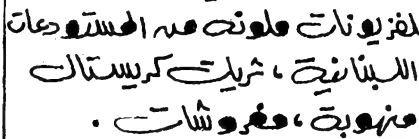 تلفزيونات ملونه من المستودعات
اللبنانية ، ثريات كريستال
منهوبة ، مفروشات .